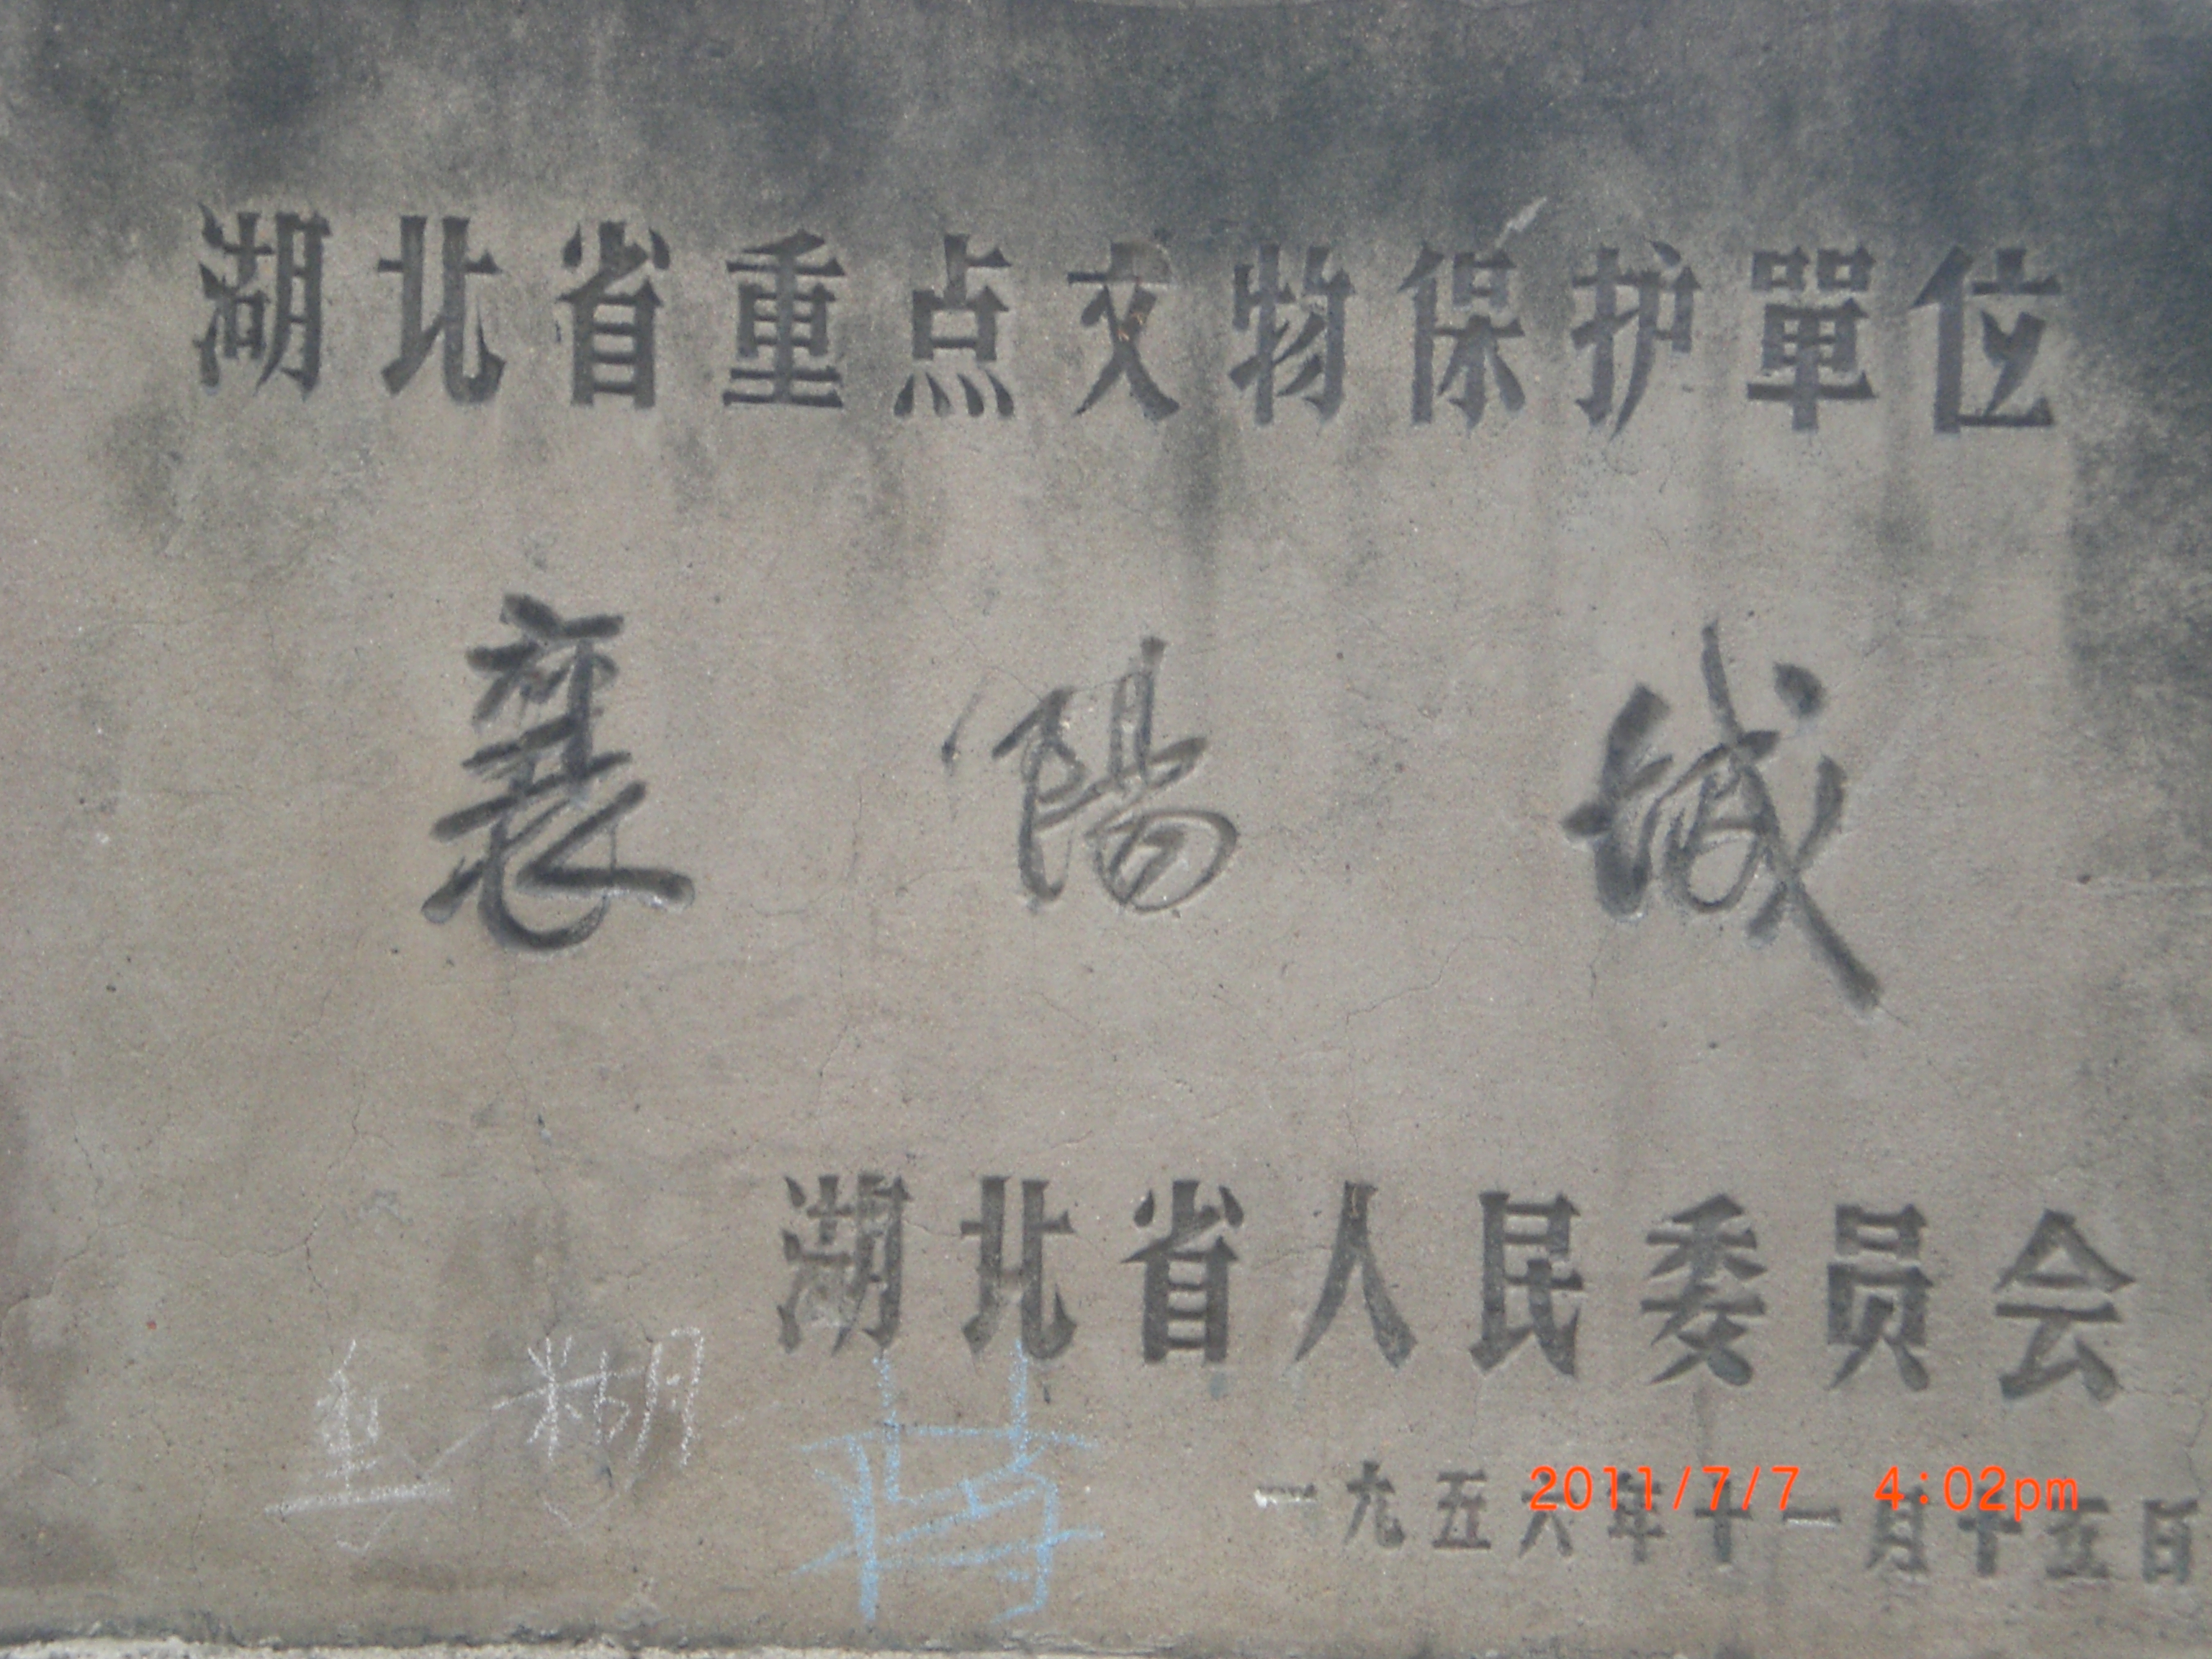 湖北省重点文物保护單位
襄陽城
湖北省人民委员会
糊
一九五六年十一月十五日
2011/7/7 4:02pm